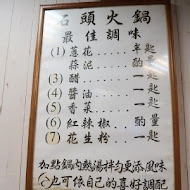 石頭火鍋
最佳調味
(1) 蔥花 一匙
蒜泥 酌量
(2) 醋 一匙
(3) 醬油 一匙
(4) 香菜
(5) 紅辣椒 酌量
(7) 花生粉 一匙
加點鍋內熱湯拌勻更添風味
也可依自己的喜好調配